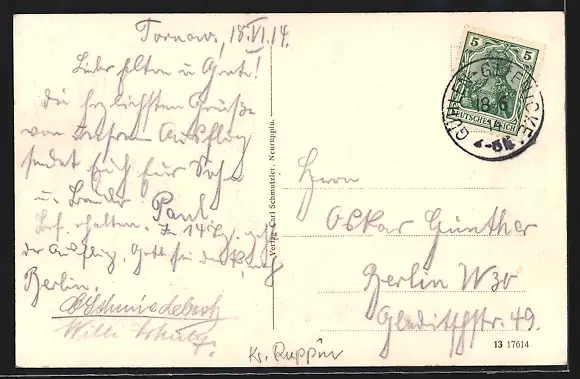 Tornow, 18.VI.14.
Liebe Eltern u. Grete!
Die herzlichsten Grüße
von unserem Ausflug
sendet Euch Euer Sohn
u. Bruder Paul.
erhalten. In 14 Tg. geht
der Ausflug, Gott sei Dank
Berlin.
Schmiedebach
Willi Schulz.
Kr. Ruppin
Verlag Carl Schmutzler, Neuruppin.
5 5
DEUTSCHES REICH
18.6
Herrn
Oskar Günther
Berlin W 30
Gleditschstr. 49.
13 17614